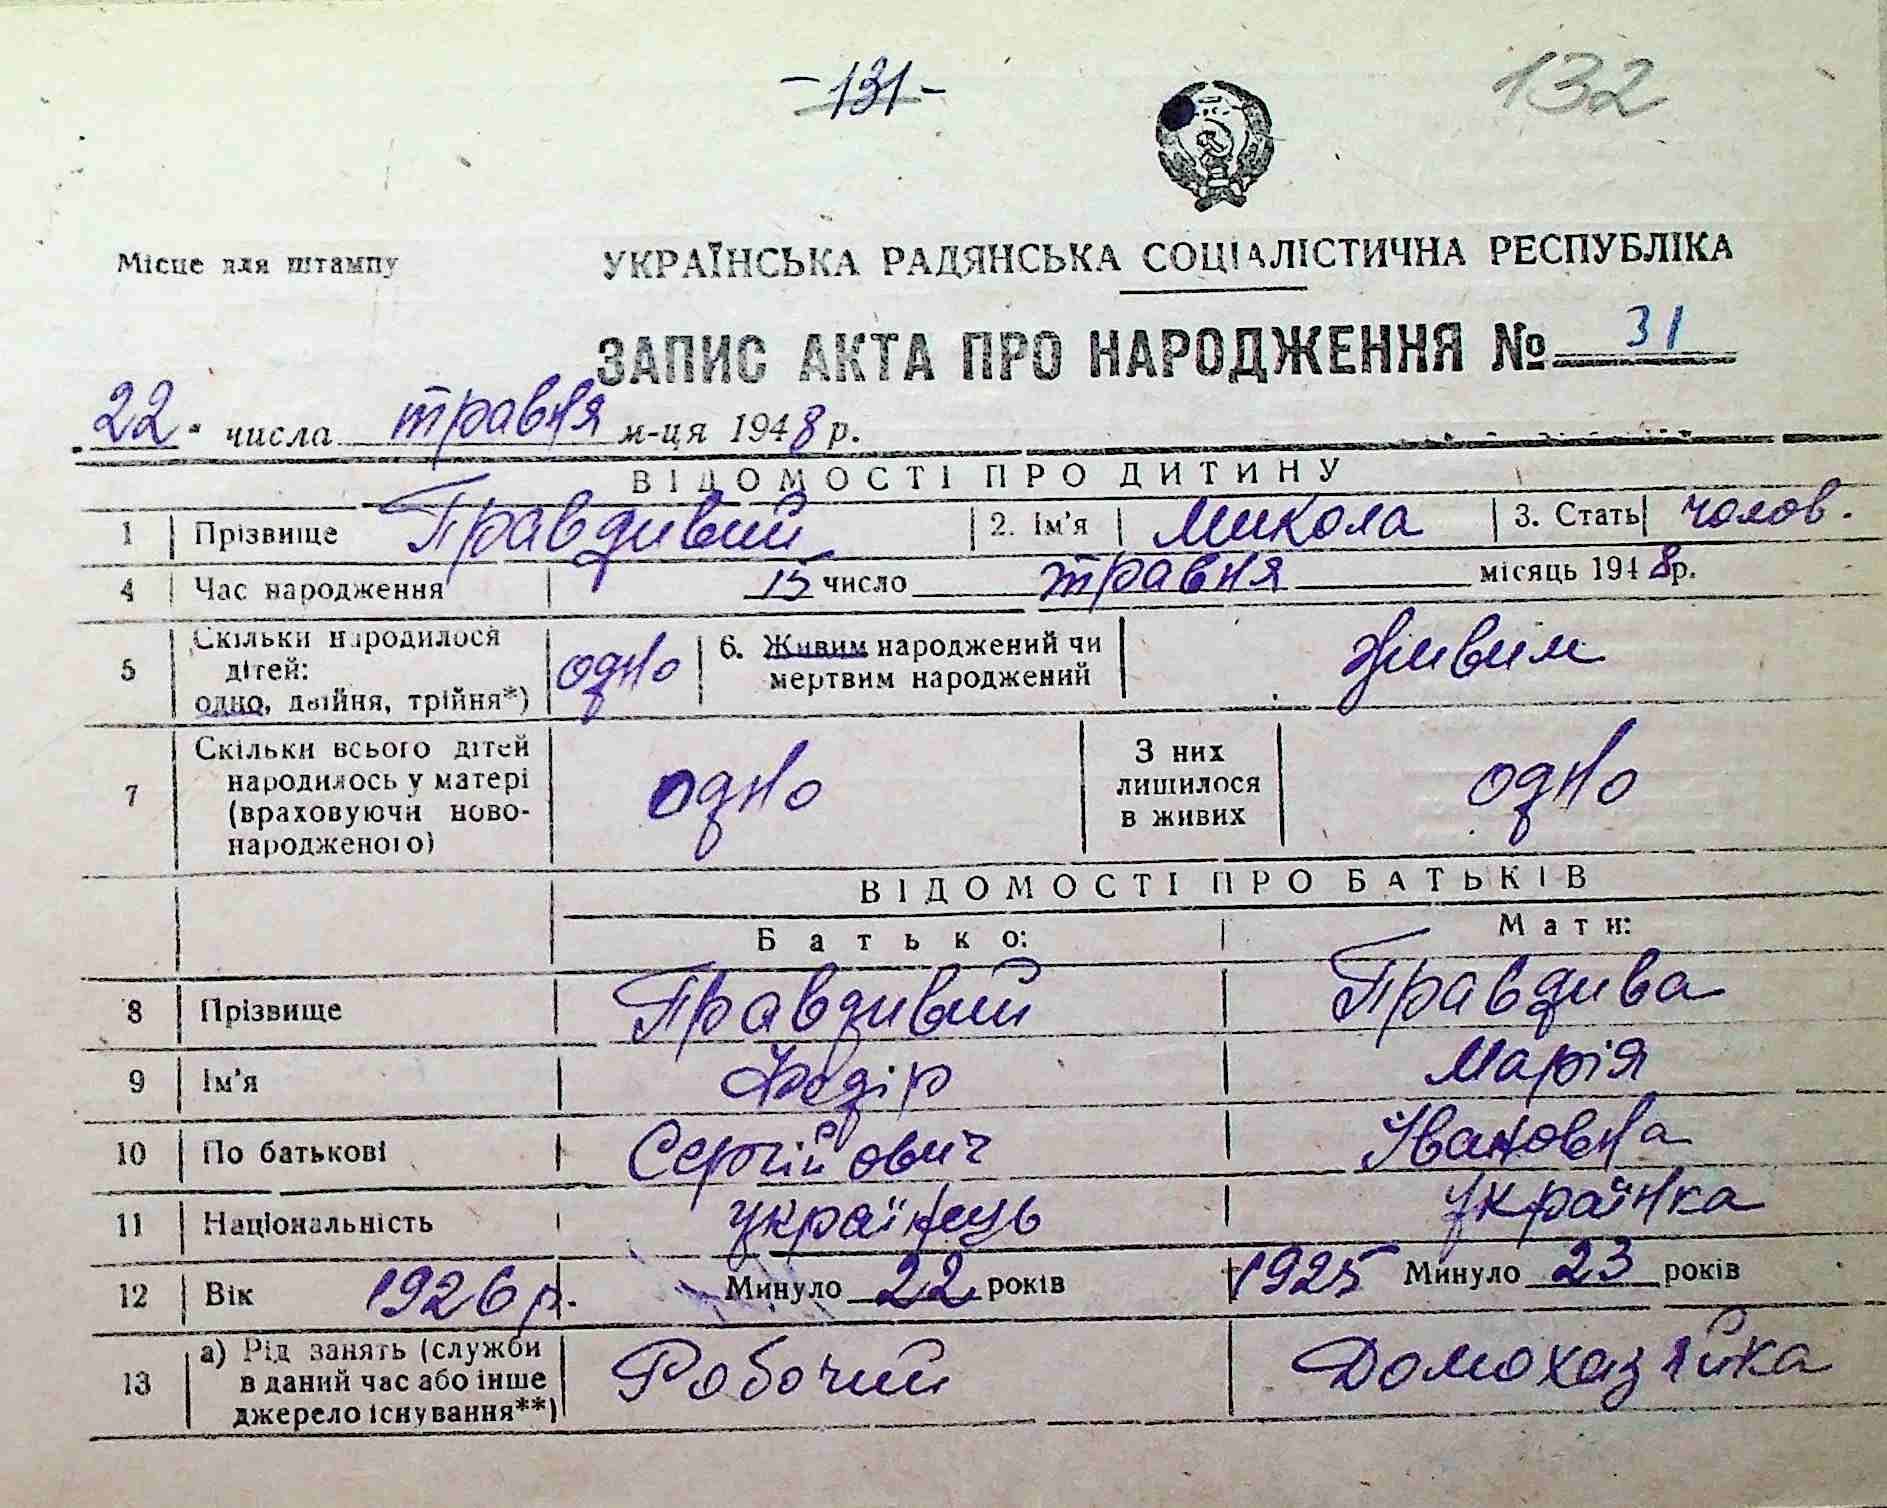 -131-
132
Місце для штампу
УКРАЇНСЬКА РАДЯНСЬКА СОЦІАЛІСТИЧНА РЕСПУБЛІКА
ЗАПИС АКТА ПРО НАРОДЖЕННЯ № 31
22 " числа травня м-ця 1948 р.
ВІДОМОСТІ ПРО ДИТИНУ
1 Прізвище Правдивий 2. Ім'я Микола 3. Стать чолов.
4 Час народження 15 число травня місяць 1948р.
5 Скільки народилося дітей: одно, двійня, трійня*) одно 6. Живим народжений чи мертвим народжений Живим
7 Скільки всього дітей народилось у матері (враховуючи ново-народженого) одно З них лишилося в живих одно
ВІДОМОСТІ ПРО БАТЬКІВ
Батько: Мати:
8 Прізвище Правдивий Правдива
9 Ім'я Федір Марія
10 По батькові Сергійович Івановна
11 Національність українець українка
12 Вік 1926 р. Минуло 22 років 1925 Минуло 23 років
13 а) Рід занять (служби в даний час або інше джерело існування**) Робочий Домохазяйка